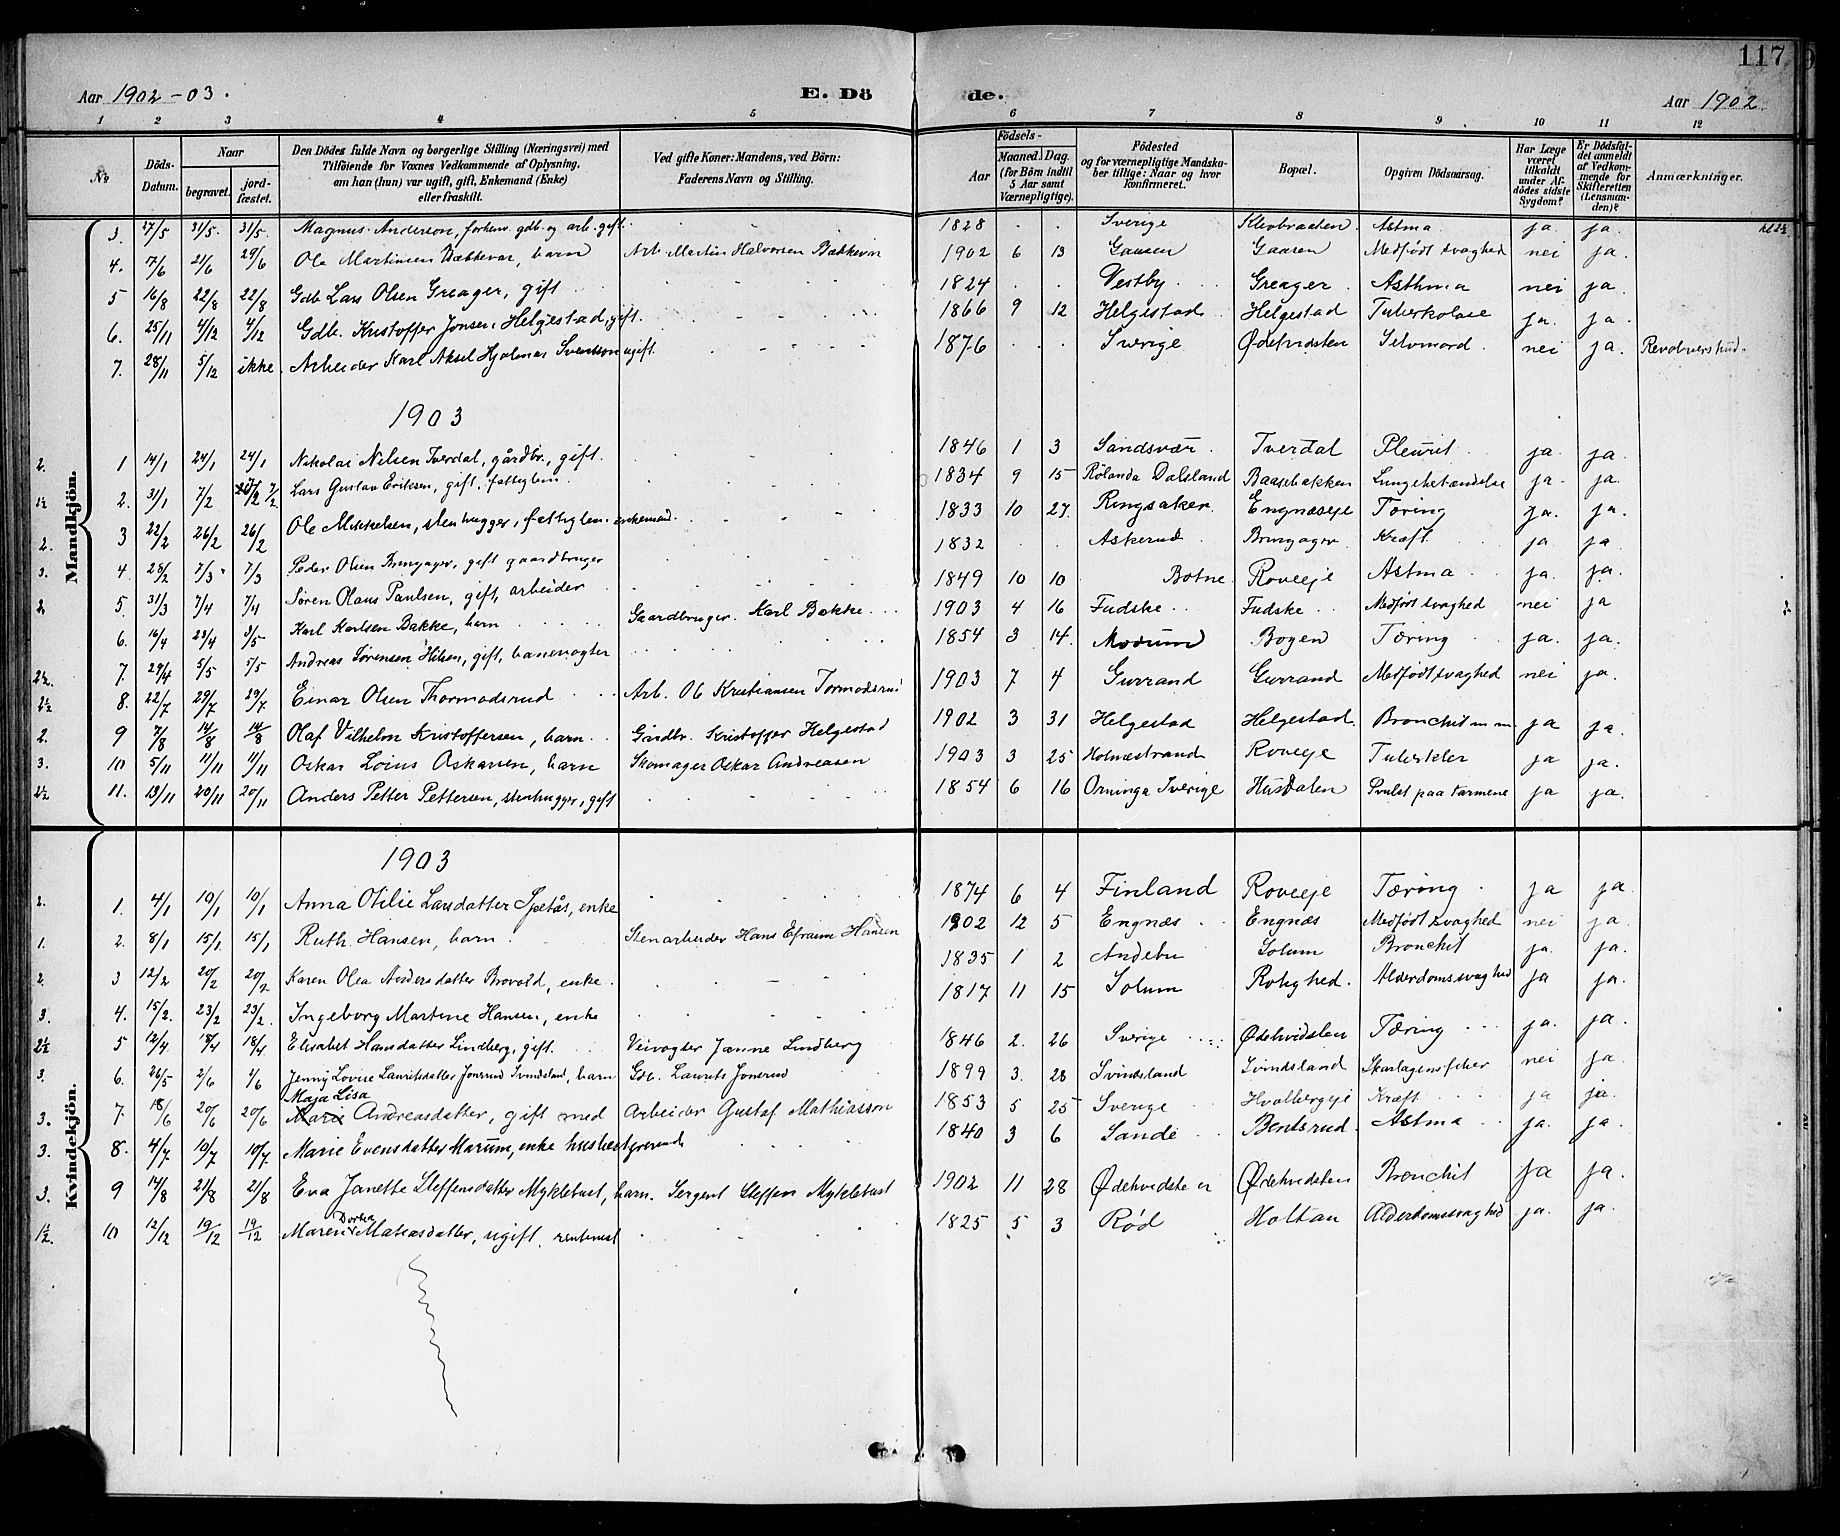 117
Aar 1902-03. E. Dö de. Aar 1902.
1 2 3 4 5 6 7 8 9 10 11 12
№ Döds-Datum. Naar begravet. jord-fæstet. Den Dödes fulde Navn og borgerlige Stilling (Næringsvei) med Tilföiende for Voxnes Vedkommende af Oplysning, om han (hun) var ugift, gift, Enkemand (Enke) eller fraskilt. Ved gifte Koner: Mandens, ved Börn: Faderens Navn og Stilling. Aar Födsels- Maaned. Dag. (for Börn indtil 5 Aar samt Værnepligtige). Födested og for værnepligtige Mandskaber tillige: Naar og hvor konfirmeret. Bopæl. Opgiven Dödsaarsag. Har Læge været tilkaldt under Afdödes sidste Sygdom? Er Dödsfaldet anmeldt af Vedkommende for Skifteretten (Lensmanden)? Anmærkninger.
Mandkjön.
3. 27/5 31/5. 31/5. Magnus Anderson, forhenv. gdb. og arb. gift. 1828 Sverige Klevbraaten Astma ja. ja.
4. 7/6 21/6 29/6 Ole Martinsen Bækkevar, barn Arb. Martin Halvorsen Bækkevar 1902 6 13 Gaasen Gaasen Medfødt svaghed nei ja.
5 16/8 22/8 22/8 Gdb. Lars Olsen Greager, gift 1824 Vestby Greager Asthma nei ja.
6. 25/11 4/12 4/12 Gdb. Kristoffer Jonsen Helgestad, gift. 1866 9 12 Helgestad Helgestad Tuberkolose ja. ja.
7. 28/11 5/12 ikke. Arbeider Karl Aksel Hjalmar Svensson ugift. 1876 Sverige Selvmord nei ja. Revolverskud.
1903
2. 1 14/1 24/1 24/1 Nikolai Nilsen Tverdal, gårdbr., gift. 1846 1 3 Sandsvær Tverdal Pleurit ja. ja.
1½ 2. 31/1 7/2 7/2 Lars Gustav Eriksen, gift, fattiglem. 1834 9 15 Rølanda Dalsland Baasebakken Lungebetændelse ja. ja.
2. 3 22/2 26/2 26/2 Ole Mikkelsen, stenhugger, fattiglem. enkemand. 1833 10 27. Ringsaker. Engnæseje Tæring ja. ja.
3. 4. 28/2 7/3 7/3 Peder Olsen Bringager, gift gaardbruger 1832 Askerud Bringager Kræft ja ja
2. 5. 31/3 7/4 7/4 Søren Olaus Paulsen, gift, arbeider 1849 10 10 Botne. Roveeje Astma ja. ja.
6. 16/4 23/4 3/5 Karl Karlsen Bakke, barn Gaardbruger. Karl Bakke 1903 4 16 Fudske Fudske Medfødt svaghed nei ja
2½ 7. 29/4 5/5 5/5 Andreas Sørensen Hilsen, gift, banevogter 1854 3 14. Modum Bogen Tæring ja. ja.
2½ 8. 22/7 29/7 29/7 Einar Olsen Thormodsrud Arb. Ole Kristiansen Tormodsrud 1903 7 4 Gurrand Gurrand Medfødt svaghed nei ja.
2. 9 7/8 14/8 14/8 Olaf Vilhelm Kristoffersen, barn Gårdbr. Kristoffer Helgestad 1902 3 31 Helgestad Helgestad. Bronchit m m ja ja.
3. 10 5/11 11/11 11/11 Oskar Loius Oskarsen, barn Skomager Oskar Andreasen 1903 3 25 Holmestrand Roveeje Tuberkler ja ja.
2½ 11. 13/11 20/11 20/11 Anders Petter Pettersen, stenhugger, gift 1854 6 16 Orninga Sverige Husdalen Svulst paa tarmene ja ja.
Kvindekjön.
1903
2. 1. 4/1 10/1 10/1 Anna Otilie Larsdatter Spetås, enke 1874 6 4 Finland Roveeje Tæring ja ja.
1. 2. 8/1 15/1. 15/1. Ruth Hansen, barn Stenarbeider Hans Efraim Hansen 1902 12 5 Engnæs Engnæs Medfødt svaghed nei ja.
2. 3 12/2 20/2 20/2 Karen Olea Andersdatter Brovold, enke. 1835 1 2 Andebu Solum Bronchit ja. ja.
3. 4. 15/2. 23/2 23/2. Ingeborg Martine Hansen, enke 1817 11 15 Solum Rolighed. Alderdomssvaghed ja ja.
2½ 5 12/4 18/4 18/4 Elisabet Hansdatter Lindberg, gift. Veivogter Janne Lindberg 1846 2. 26 Sverige Ødehvidsten Tæring ja. ja.
3. 6. 26/5 2/6 2/6 Jenny Lovise Lauritsdatter Jonsrud Svindsland, barn Gdb. Laurits Jonsrud 1899 3. 28 Svindsland Svindsland Skarlagensfeber nei ja.
Maja Lisa
3. 7. 18/6 20/6 20/6 Marie Andreasdatter, gift med Arbeider Gustaf Mathiasson 1853 5 25 Sverige Hvalbergeje Kræft ja ja.
3. 8. 4/7 10/7 10/7. Marie Evensdatter Marum, enke husbestyrerinde 1840 3 6 Sande Bentsrud Astma ja. ja.
3. 9 14/8 21/8 21/8 Eva Janette Steffensdatter Myklebust, barn. Sergent Steffen Myklebust 1902 11 28 Ødehvidsten Ødehvidsten Bronchit ja ja.
Dortea
1½. 10 12/12 19/12 19/12 Maren Matiasdatter, ugift. rentenist 1825 5 3 Rød Holtan Alderdomssvaghed ja. ja.